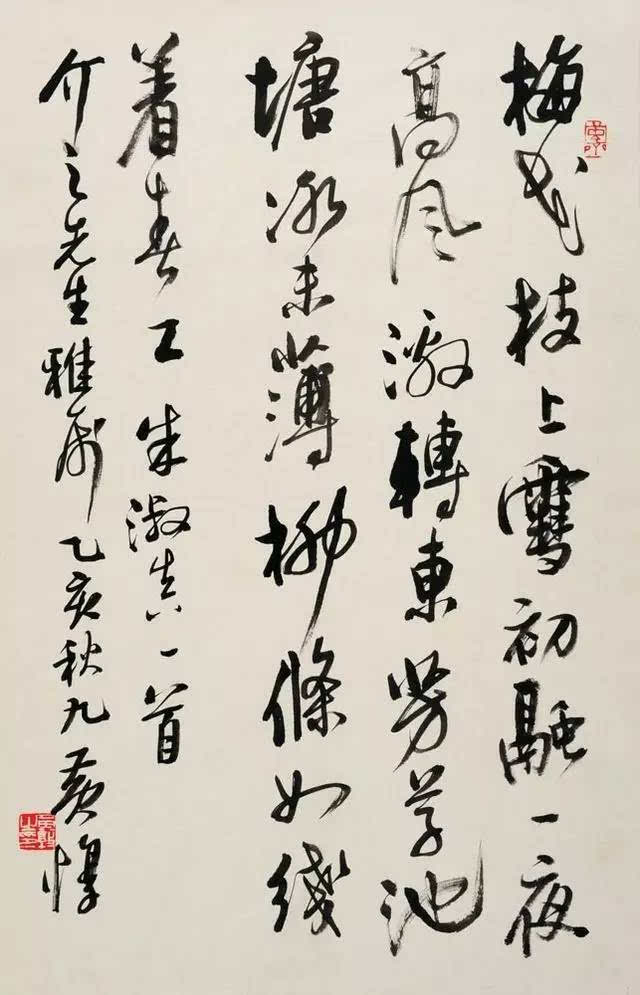 梅花枝上雪初融一夜
高風激轉東芳草池
塘冰未薄柳條如綫
着春工朱淑真一首
介之先生雅属乙亥秋九黄惇